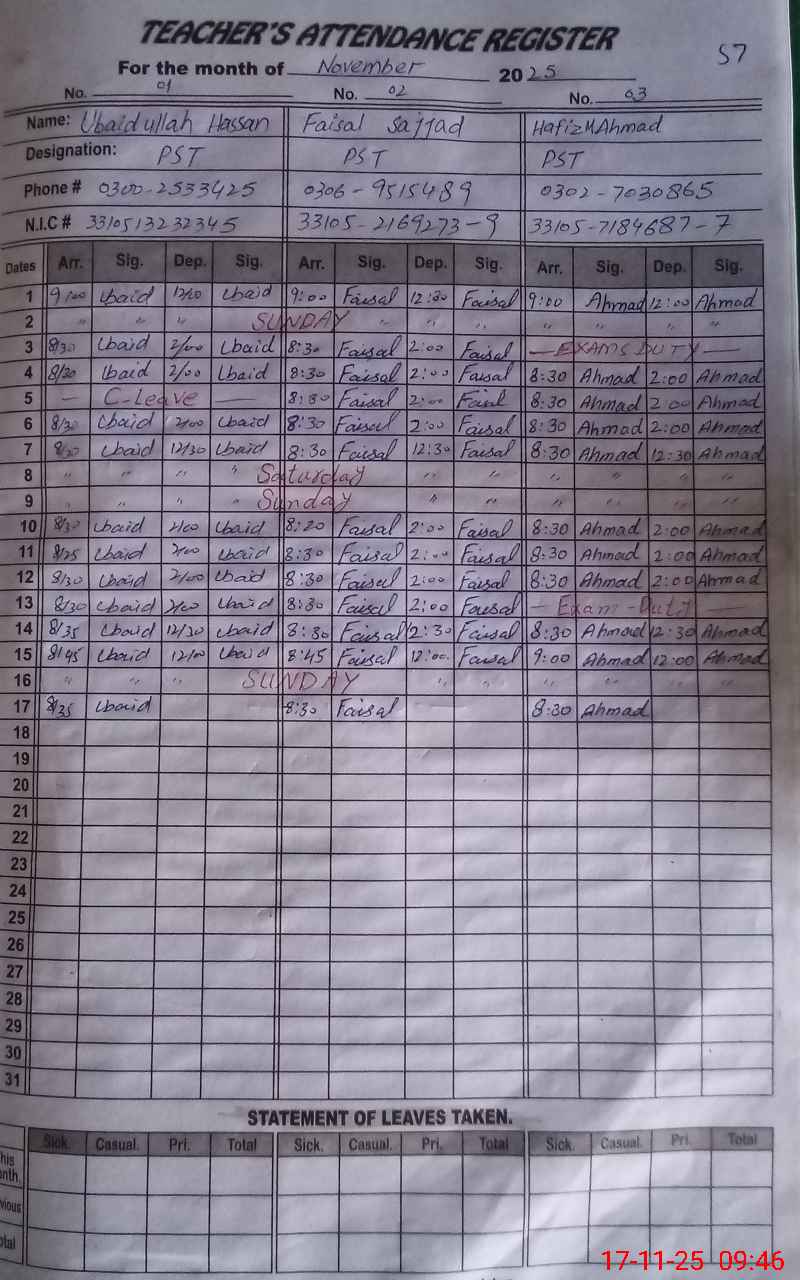 TEACHER'S ATTENDANCE REGISTER
57
For the month of November 2025
No. 01 No. 02 No. 03
Name: Ubaidullah Hassan Faisal Sajjad Hafiz M Ahmad
Designation: PST PST PST
Phone # 0300-2533425 0306-9515489 0302-7030865
N.I.C # 3310513232345 33105-2169273-9 33105-7184687-7
Dates Arr. Sig. Dep. Sig. Arr. Sig. Dep. Sig. Arr. Sig. Dep. Sig.
1 9/00 Ubaid 12/00 Ubaid 9:00 Faisal 12:30 Faisal 9:00 Ahmad 12:00 Ahmad
2 " " " SUNDAY " " " " " " "
3 8/30 Ubaid 2/00 Ubaid 8:30 Faisal 2:00 Faisal — EXAMS DUTY —
4 8/30 Ubaid 2/00 Ubaid 8:30 Faisal 2:00 Faisal 8:30 Ahmad 2:00 Ahmad
5 — C-Leave — 8:30 Faisal 2:00 Faisal 8:30 Ahmad 2:00 Ahmad
6 8/30 Ubaid 2/00 Ubaid 8:30 Faisal 2:00 Faisal 8:30 Ahmad 2:00 Ahmad
7 8/30 Ubaid 12/30 Ubaid 8:30 Faisal 12:30 Faisal 8:30 Ahmad 12:30 Ahmad
8 " " " " Saturday " " " " " "
9 " " " " Sunday " " " " " "
10 8/30 Ubaid 2/00 Ubaid 8:20 Faisal 2:00 Faisal 8:30 Ahmad 2:00 Ahmad
11 8/25 Ubaid 2/00 Ubaid 8:30 Faisal 2:00 Faisal 8:30 Ahmad 2:00 Ahmad
12 8/30 Ubaid 2/00 Ubaid 8:30 Faisal 2:00 Faisal 8:30 Ahmad 2:00 Ahmad
13 8/30 Ubaid 2/00 Ubaid 8:30 Faisal 2:00 Faisal — Exam-Duty —
14 8/35 Ubaid 12/30 Ubaid 8:30 Faisal 12:30 Faisal 8:30 Ahmad 12:30 Ahmad
15 8/45 Ubaid 12/00 Ubaid 8:45 Faisal 12:00 Faisal 9:00 Ahmad 12:00 Ahmad
16 " " " SUNDAY " " " " " "
17 8/35 Ubaid 8:30 Faisal 8:30 Ahmad
18
19
20
21
22
23
24
25
26
27
28
29
30
31
STATEMENT OF LEAVES TAKEN.
Sick. Casual. Pri. Total Sick. Casual. Pri. Total Sick. Casual. Pri. Total
his
nth.
vious
otal
17-11-25 09:46